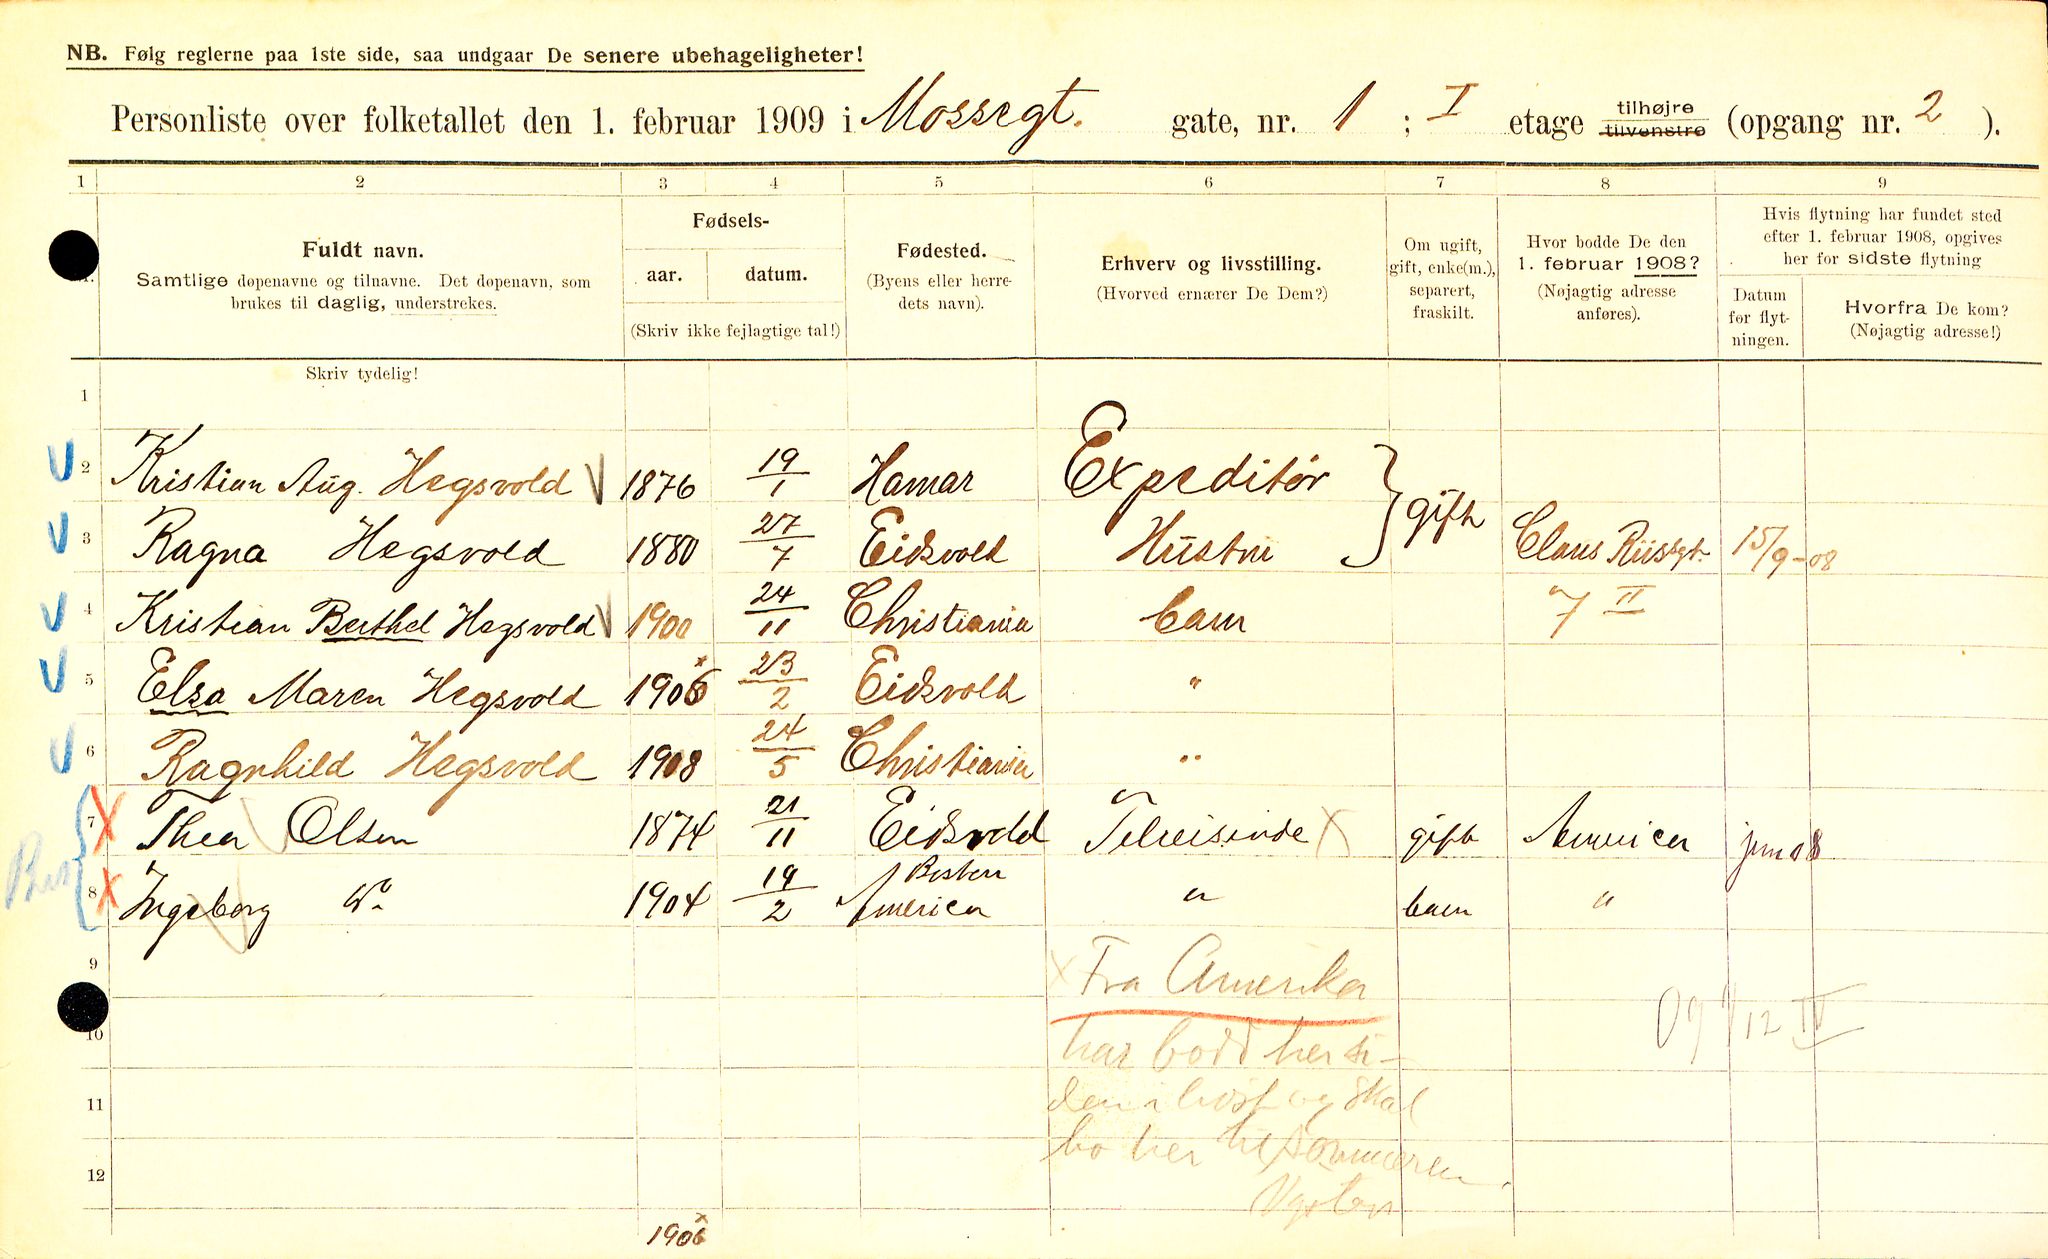 NB. Følg reglerne paa 1ste side, saa undgaar De senere ubehageligheter!
Personliste over folketallet den 1. februar 1909 i Mossegt. gate, nr. 1 ; I etage tilhøjre tilvenstre (opgang nr. 2 ).
1 2 3 4 5 6 7 8 9
Fuldt navn.
Samtlige døpenavne og tilnavne. Det døpenavn, som
brukes til daglig, understrekes.
Fødsels-
aar. datum.
(Skriv ikke fejlagtige tal!)
Fødested.
(Byens eller herre-
dets navn).
Erhverv og livsstilling.
(Hvorved ernærer De Dem?)
Om ugift,
gift, enke(m.),
separert,
fraskilt.
Hvor bodde De den
1. februar 1908?
(Nøjagtig adresse
anføres).
Hvis flytning har fundet sted
efter 1. februar 1908, opgives
her for sidste flytning
Datum
for flyt-
ningen.
Hvorfra De kom?
(Nøjagtig adresse!)
Skriv tydelig!
1
2 Kristian Aug. Hegsvold 1876 19/1 Hamar Expeditør gift
3 Ragna Hegsvold 1880 27/7 Eidsvold Hustru Claus Riisgt. 15/9-08
4 Kristian Berthel Hegsvold 1900 24/11 Christiania barn 7 II
5 Elsa Maren Hegsvold 1906 x 23/2 Eidsvold "
6 Ragnhild Hegsvold 1908 24/5 Christiania "
7 Thea Olsen 1874 21/11 Eidsvold Tilreisende x gift America juni 08
8 Ingeborg do 1904 19/2 Boston America " barn "
9 x Fra Amerika
10 har bodd her si-
11 den i høst og skal
12 bo her til sommeren.
09 1/12 IV
1906 x